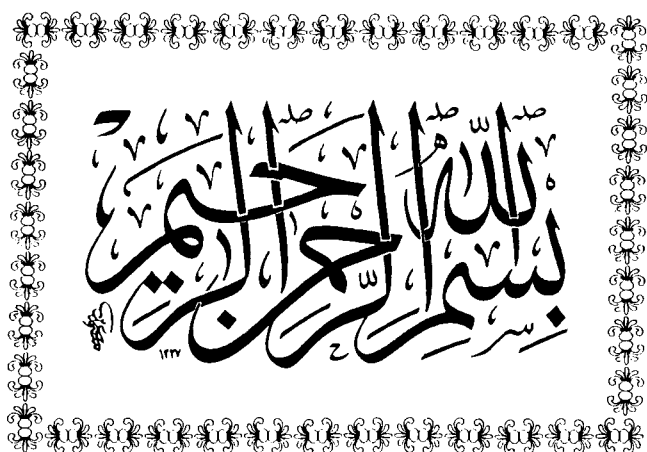 بِسْمِ اللَّهِ الرَّحْمنِ الرَّحِيمِ
١٣٣٧